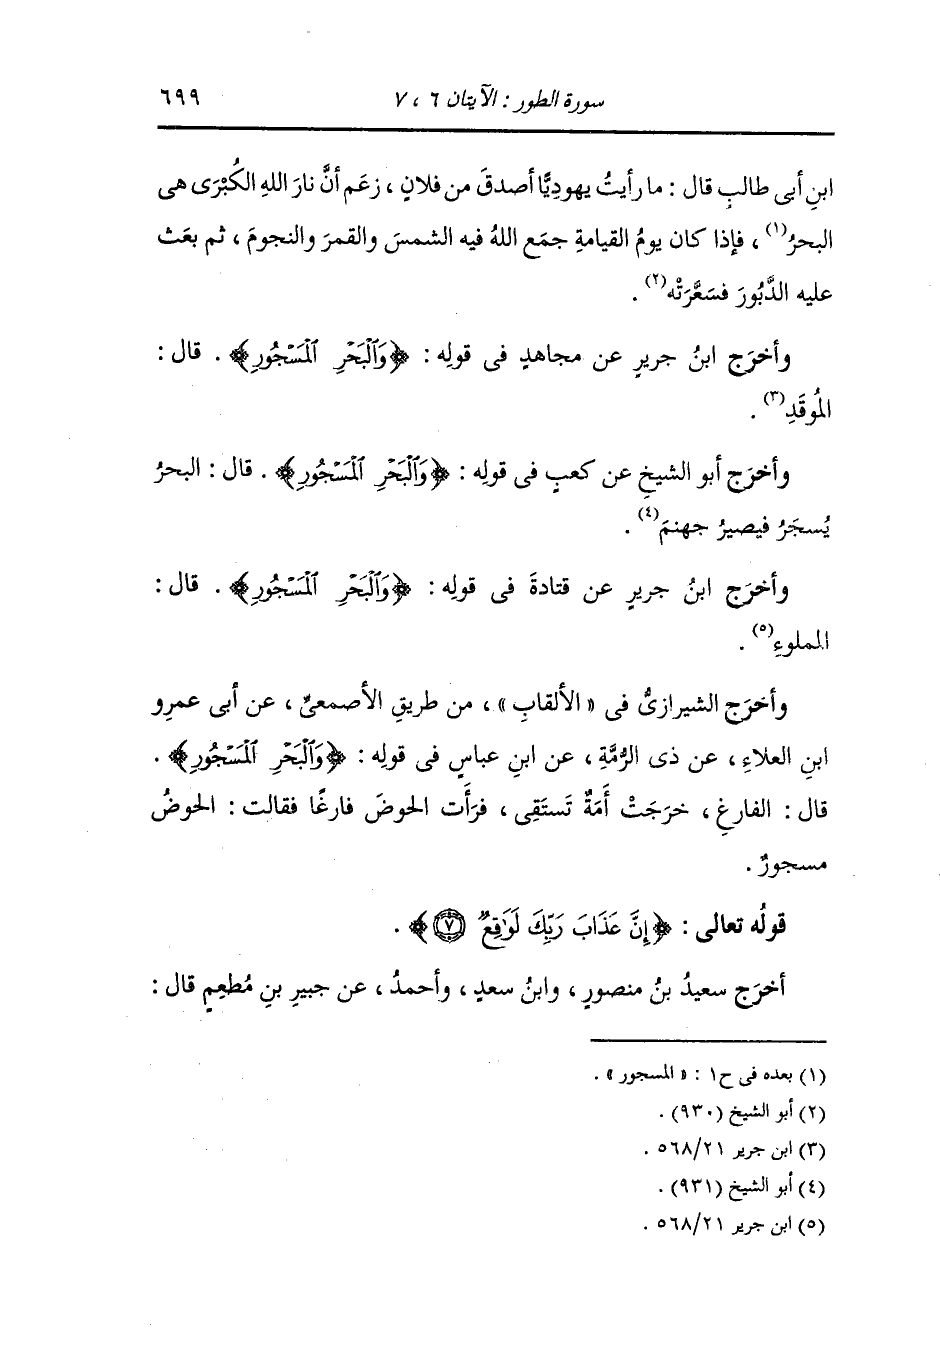 سورة الطور : الآيتان ٦ ، ٧ ٦٩٩
ابنِ أبى طالبٍ قال : ما رأيتُ يهوديًّا أصدقَ من فلانٍ ، زعَم أنَّ نارَ اللهِ الكُبْرَى هى
البحرُ(١) ، فإذا كان يومُ القيامةِ جمَع اللهُ فيه الشمسَ والقمرَ والنجومَ ، ثم بعَث
عليه الدَّبُورَ فسَعَّرَتْه(٢) .
وأخرَج ابنُ جريرٍ عن مجاهدٍ فى قولِه : ﴿وَٱلْبَحْرِ ٱلْمَسْجُورِ﴾ . قال :
المُوقَدِ(٣) .
وأخرَج أبو الشيخِ عن كعبٍ فى قولِه : ﴿وَٱلْبَحْرِ ٱلْمَسْجُورِ﴾ . قال : البحرُ
يُسجَرُ فيصيرُ جهنمَ(٤) .
وأخرَج ابنُ جريرٍ عن قتادةَ فى قولِه : ﴿وَٱلْبَحْرِ ٱلْمَسْجُورِ﴾ . قال :
المملوءِ(٥) .
وأخرَج الشيرازىُّ فى « الألقابِ » ، من طريقِ الأصمعىِّ ، عن أبى عمرِو
ابنِ العلاءِ ، عن ذى الرُّمَّةِ ، عن ابنِ عباسٍ فى قولِه : ﴿وَٱلْبَحْرِ ٱلْمَسْجُورِ﴾ .
قال : الفارغِ ، خرَجَتْ أَمَةٌ تَستَقِى ، فرَأَت الحوضَ فارغًا فقالت : الحوضُ
مسجورٌ .
قولُه تعالى : ﴿إِنَّ عَذَابَ رَبِّكَ لَوَٰقِعٌ ٧﴾ .
أخرَج سعيدُ بنُ منصورٍ ، وابنُ سعدٍ ، وأحمدُ ، عن جبيرِ بنِ مُطعِمٍ قال :
(١) بعده فى ح١ : « المسجور » .
(٢) أبو الشيخ (٩٣٠) .
(٣) ابن جرير ٥٦٨/٢١ .
(٤) أبو الشيخ (٩٣١) .
(٥) ابن جرير ٥٦٨/٢١ .